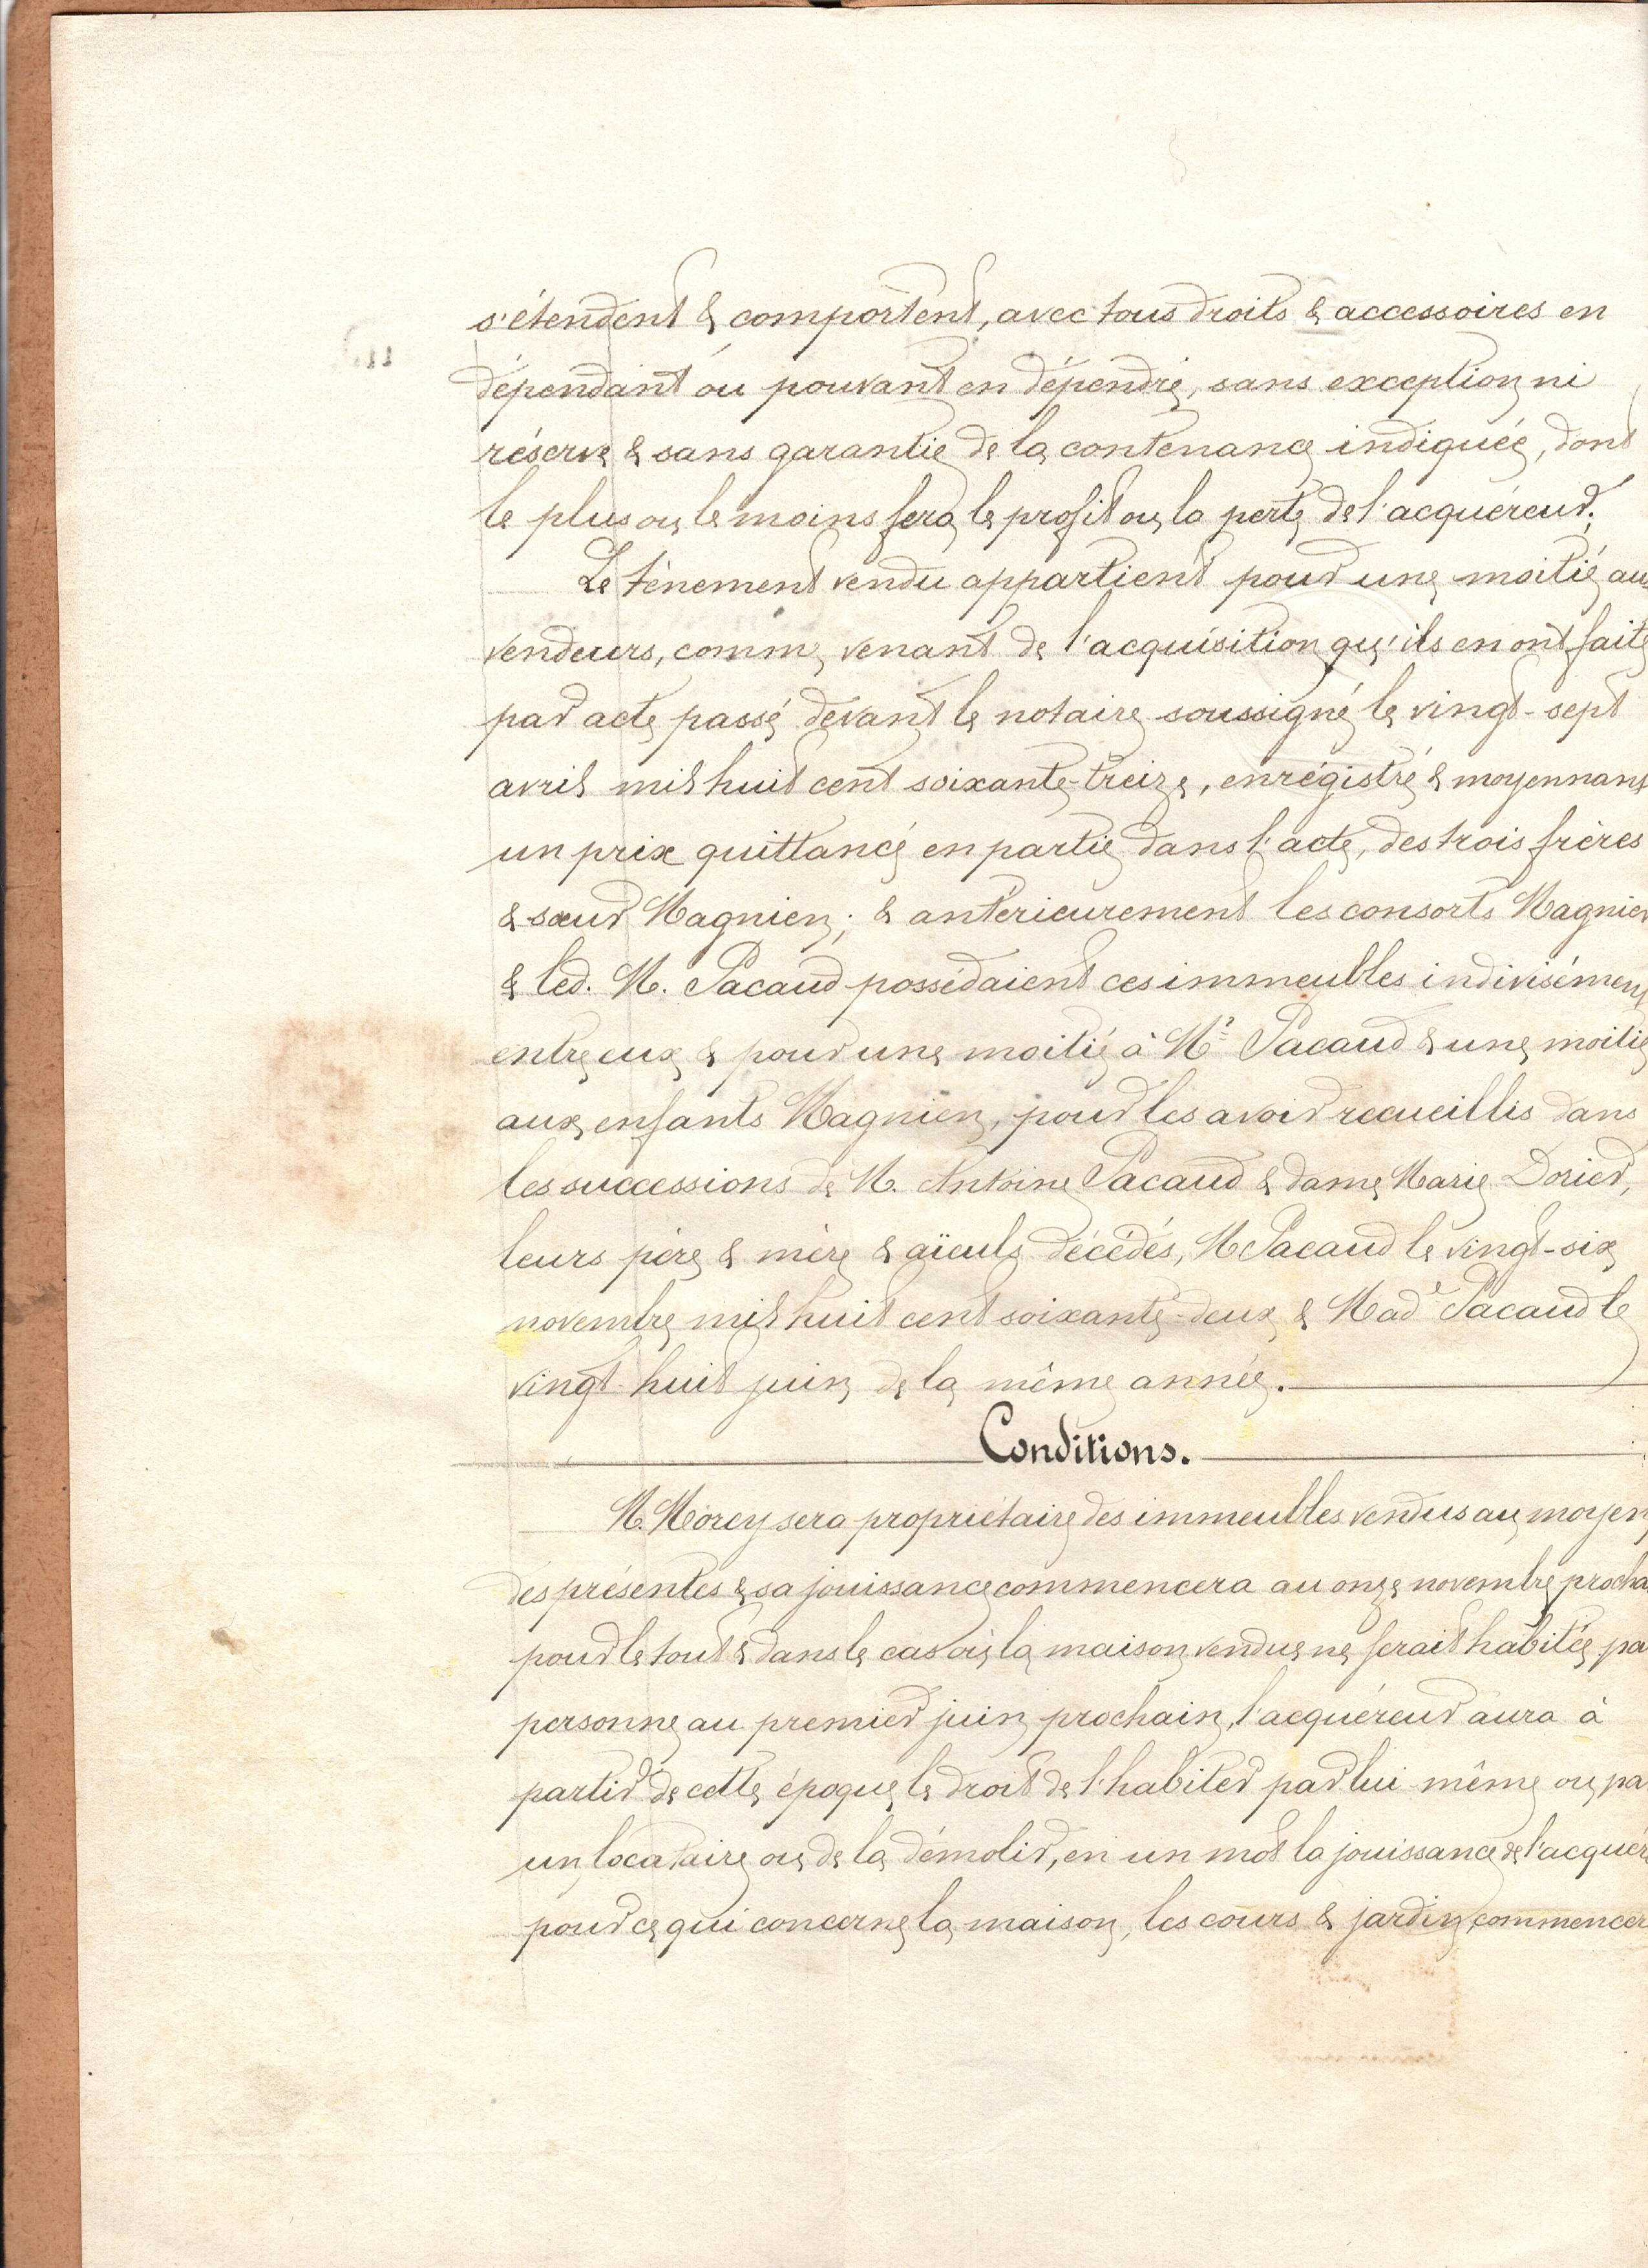 s'étendent & comportent, avec tous droits & accessoires en
dépendant ou pouvant en dépendre, sans exception ni
réserve & sans garantie de la contenance indiquée, dont
le plus ou le moins fera le profit ou la perte de l'acquéreur.
Le tènement vendu appartient pour une moitié au
vendeurs, comme venant de l'acquisition qu'ils en ont faite
par acte passé devant le notaire soussigné le vingt-sept
avril mil huit cent soixante-treize, enrégistré & moyennant
un prix quittancé en partie dans l'acte, des trois frères
& sœur Magnien; & antérieurement les consorts Magnien
& led. M. Pacaud possédaient ces immeubles indivisément
entre eux & pour une moitié à Mr Pacaud & une moitié
aux enfants Magnien, pour les avoir recueillis dans
les successions de M. Antoine Pacaud & dame Marie Dorier,
leurs père & mère & aïeuls décédés, M Pacaud le vingt-six
novembre mil huit cent soixante-deux & Made Pacaud le
vingt-huit juin de la même année.
Conditions.
M. Morey sera propriétaire des immeubles vendus au moyen
des présentes & sa jouissance commencera au onze novembre procha
pour le tout & dans le cas où la maison vendue ne serait habitée pa
personne au premier juin prochain, l'acquéreur aura à
partir de cette époque le droit de l'habiter par lui même ou pa
un locataire ou de la démolir, en un mot la jouissance de l'acquér
pour ce qui concerne la maison, les cours & jardin commencer